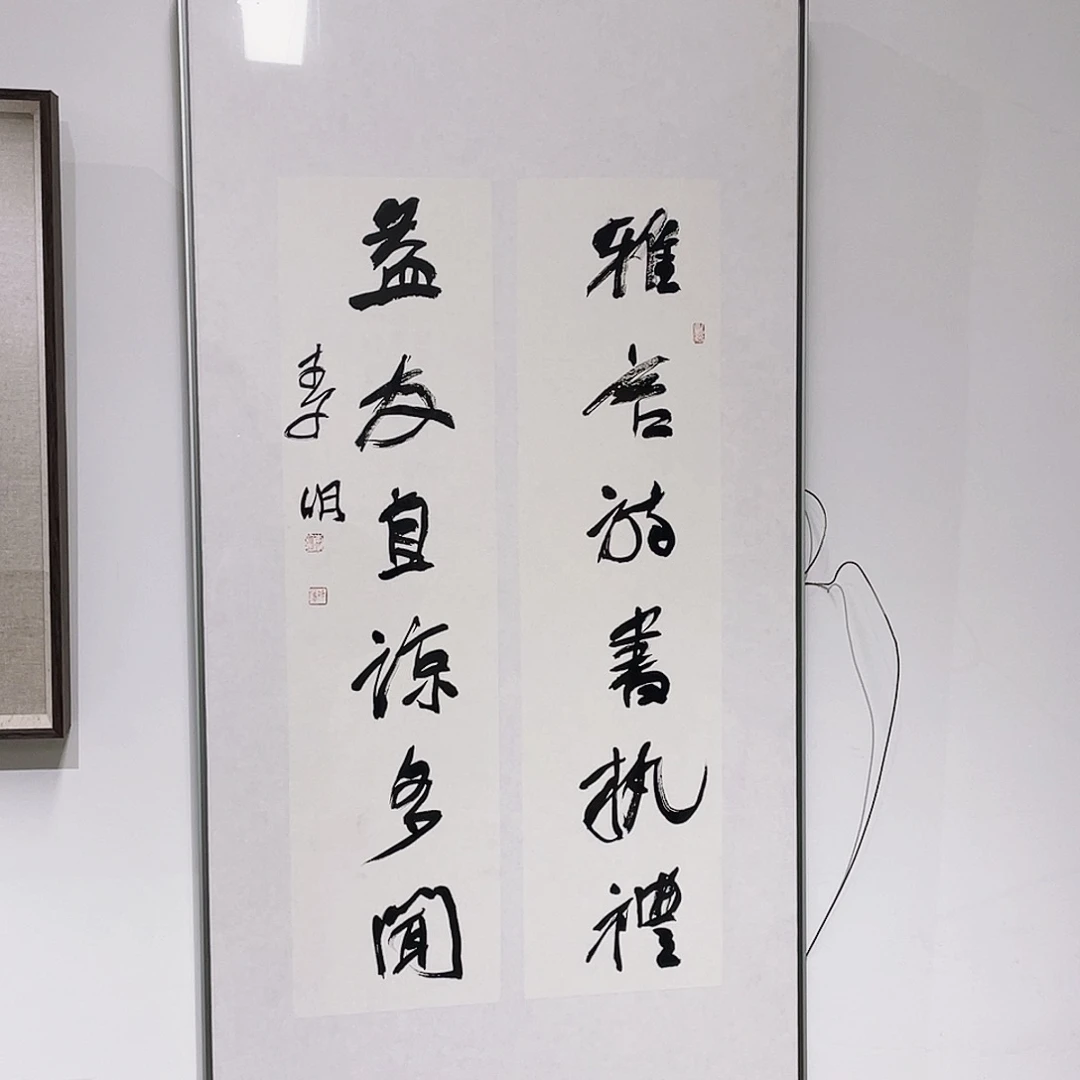 雅言詩書執禮
益友直諒多聞
李明